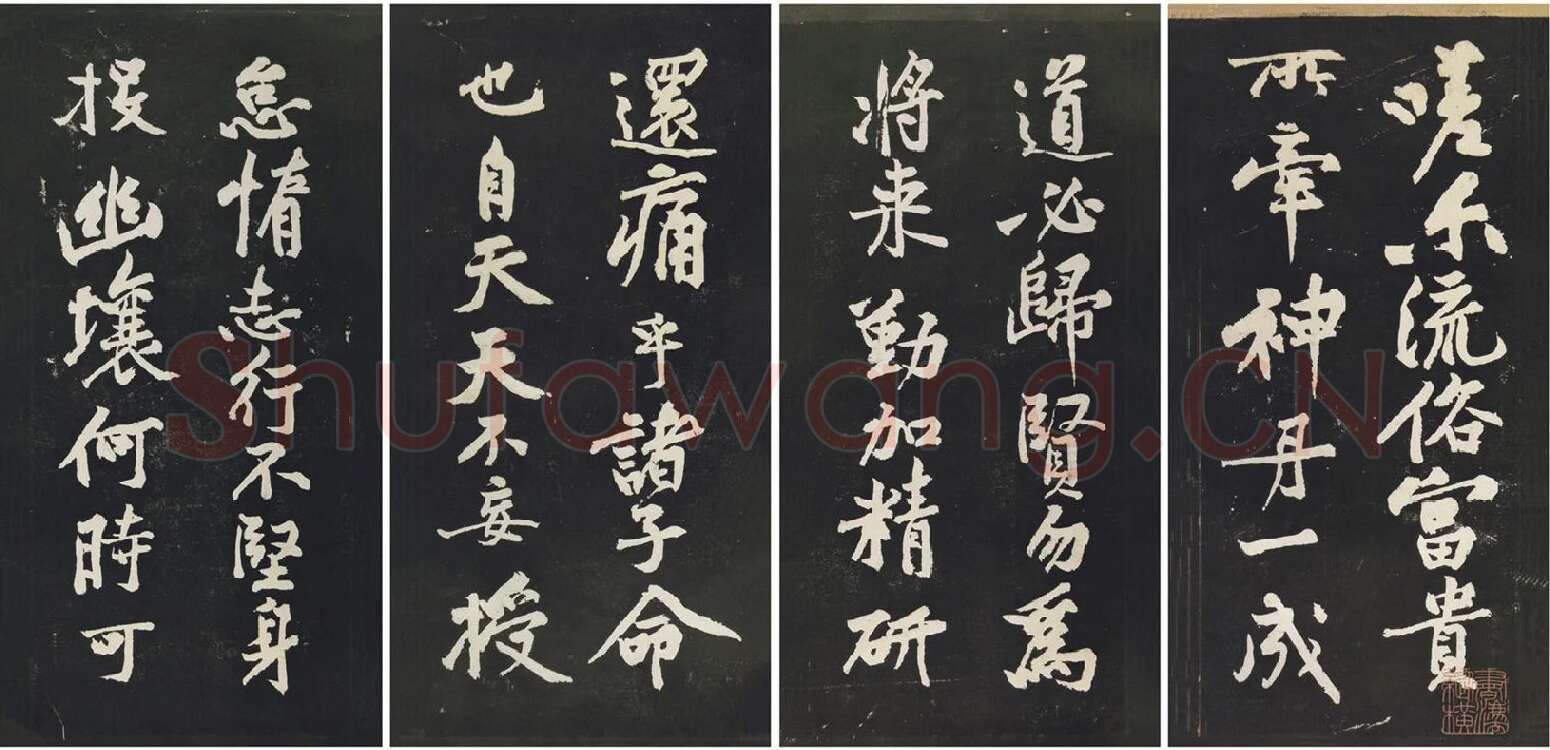 嗟尔流俗富貴
所牽神丹一成
道必歸賢勿爲
将来勤加精研
還痛乎諸子命
也自天天不妄授
怠惰志行不堅身
投幽壤何時可
Shufawang.CN